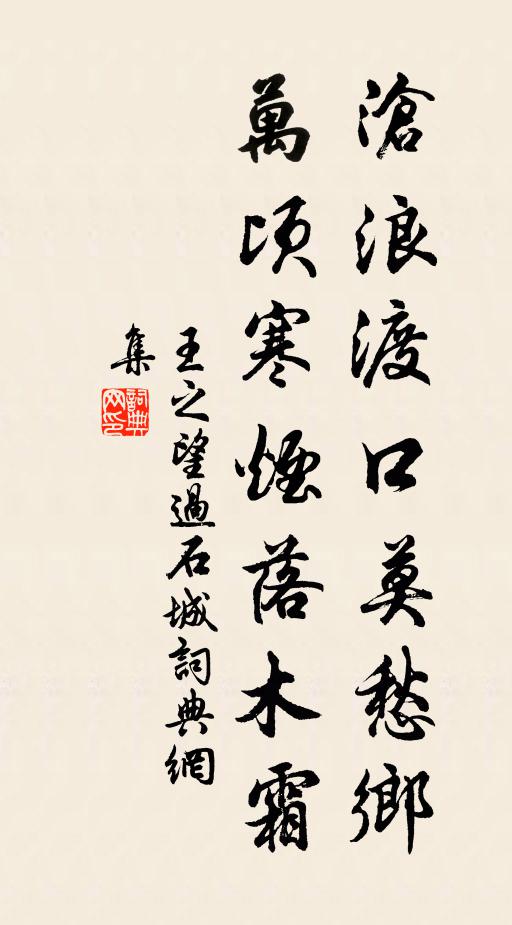 滄浪渡口莫愁鄉
萬頃寒煙落木霜
王之望過石城詞典網
集
詞典网印